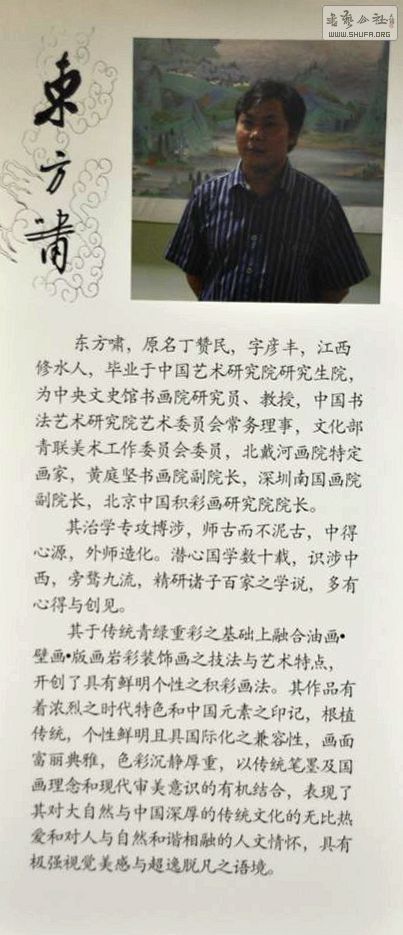 書藝公社
WWW.SHUFA.ORG
東方嘯
东方啸，原名丁赞民，字彦丰，江西
修水人，毕业于中国艺术研究院研究生院，
为中央文史馆书画院研究员、教授，中国书
法艺术研究院艺术委员会常务理事，文化部
青联美术工作委员会委员，北戴河画院特定
画家，黄庭坚书画院副院长，深圳南国画院
副院长，北京中国积彩画研究院院长。
其治学专攻博涉，师古而不泥古，中得
心源，外师造化。潜心国学数十载，识涉中
西，旁骛九流，精研诸子百家之学说，多有
心得与创见。
其于传统青绿重彩之基础上融合油画•
壁画•版画岩彩装饰画之技法与艺术特点，
开创了具有鲜明个性之积彩画法。其作品有
着浓烈之时代特色和中国元素之印记，根植
传统，个性鲜明且具国际化之兼容性，画面
富丽典雅，色彩沉静厚重，以传统笔墨及国
画理念和现代审美意识的有机结合，表现了
其对大自然与中国深厚的传统文化的无比热
爱和对人与自然和谐相融的人文情怀，具有
极强视觉美感与超逸脱凡之语境。